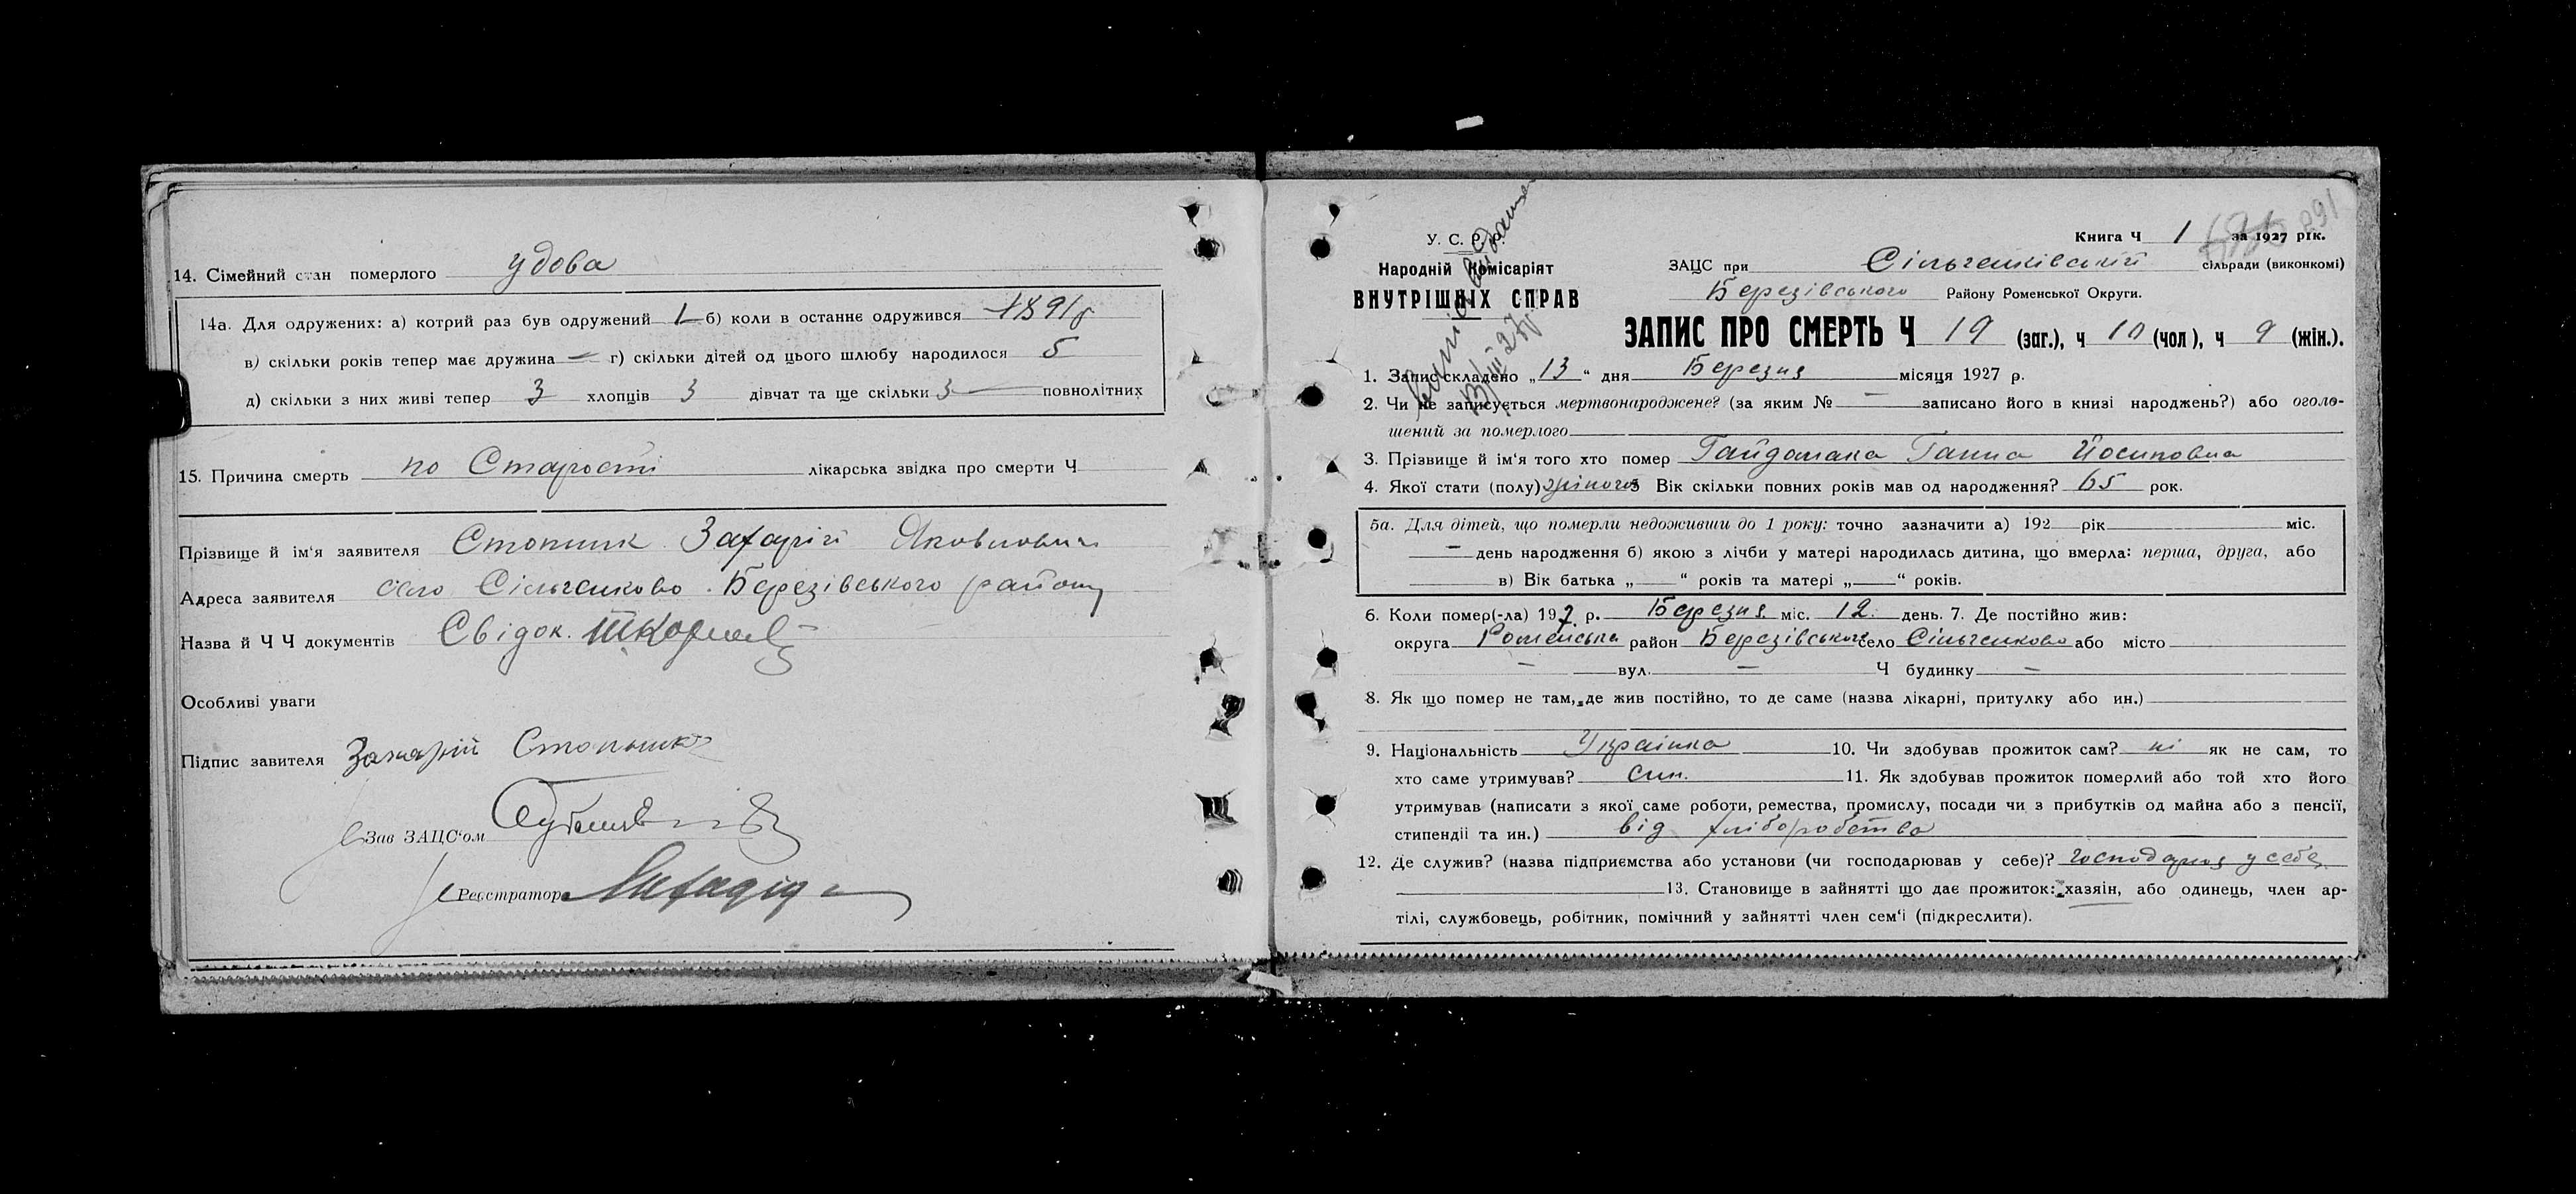 14. Сімейний стан померлого удова
14а. Для одружених: а) котрий раз був одружений 1 б) коли в останнє одружився 1891 г
в) скільки років тепер має дружина — г) скільки дітей од цього шлюбу народилося 5
д) скільки з них живі тепер 3 хлопців 3 дівчат та ще скільки 3 повнолітних
15. Причина смерть по Старості лікарська звідка про смерти Ч
Прізвище й ім'я заявителя Стопник Захарій Яковлович
Адреса заявителя село Сільченково Березівського району
Назва й Ч Ч документів Свідок.
Особливі уваги
Підпис завителя Захарій
Зав ЗАЦС'ом
Реєстратор
У. С. Р. Р.
Народній Комісаріят
ВНУТРІШНІХ СПРАВ
13/III 27 р
Книга Ч 1 за 1927 рік.
291
ЗАЦС при Сільченківській сільради (виконкомі)
Березівського Району Роменської Округи.
ЗАПИС ПРО СМЕРТЬ Ч 19 (заг.), ч 10 (чол), ч 9 (жін.).
1. Запис складено „13" дня Березня місяця 1927 р.
2. Чи не записується мертвонароджене? (за яким № — записано його в книзі народжень?) або оголо-
шений за померлого
3. Прізвище й ім'я того хто помер Гайдамака Ганна Йосиповна
4. Якої стати (полу) жіночоі Вік скільки повних років мав од народження? 65 рок.
5а. Для дітей, що померли недоживши до 1 року: точно зазначити а) 192 рік міс.
— день народження б) якою з лічби у матері народилась дитина, що вмерла: перша, друга, або
в) Вік батька „ — " років та матері „ — " років.
6. Коли помер(-ла) 1927 р. Березня міс. 12. день. 7. Де постійно жив:
округа Роменська район Березівського село Сільченково або місто
— вул. — Ч будинку —
8. Як що помер не там, де жив постійно, то де саме (назва лікарні, притулку або ин.)
9. Національність Українка 10. Чи здобував прожиток сам? ні як не сам, то
хто саме утримував? син. 11. Як здобував прожиток померлий або той хто його
утримував (написати з якої саме роботи, ремества, промислу, посади чи з прибутків од майна або з пенсії,
стипендії та ин.) від хліборобства
12. Де служив? (назва підприємства або установи (чи господарював у себе)? господарює у себе
13. Становище в зайнятті що дає прожиток: хазяїн, або одинець, член ар-
тілі, службовець, робітник, помічний у зайнятті член сем'ї (підкреслити).